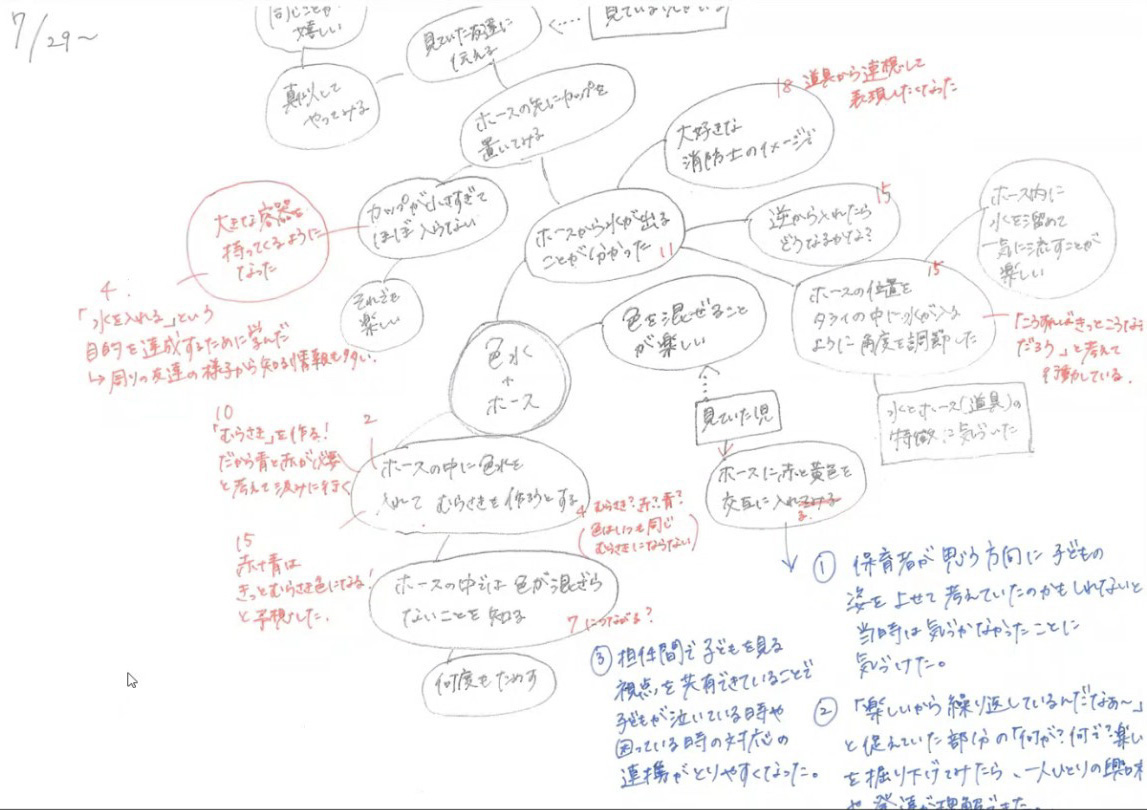 7/29~
同じことが
嬉しい
見ていた友達に
伝える
真似して
やってみる
ホースの先にカップを
置いてみる
18 道具から連想して
表現したくなった
大好きな
消防士のイメージで
大きな容器を
持ってくるように
なった
カップが小さすぎて
ほぼ入らない
ホースから水が出る
ことが分かった 11
逆から入れたら
どうなるかな?
15
ホース内に
水を溜めて
一気に流すことが
楽しい
それでも
楽しい
15
ホースの位置を
タライの中に水が入る
ように角度を調節した
4.
「水を入れる」という
目的を達成するために学んだ
↳周りの友達の様子から知る情報も多い.
色を混ぜること
が楽しい
「こうすればきっとこうなる
だろう」と考えて
動かしている.
色水
+
ホース
見ていた児
水とホース(道具)の
特徴に気づいた
10
「むらさき」を作る!
だから青と赤が必要
と考えて汲みに行く
2
ホースの中に色水を
入れて むらさきを作ろうとする
ホースに赤と黄色を
交互に入れる
4 むらさき?赤?青?
色はいつも同じ
むらさきにならない
15
赤+青は
きっとむらさき色になる!
と予想した.
ホースの中では 色が混ざら
ないことを知る
7につながる?
何度もためす
① 保育者が思う方向に子どもの
姿を上せて考えていたのかもしれないと
当時は気づかなかったことに
気づけた。
③ 担任間で子どもを見る
視点を共有できていることで
子どもが泣いている時や
困っている時の対応の
連携がとりやすくなった。
② 「楽しいから繰り返しているんだなぁ〜」
と捉えていた部分の「何が?何で?楽しい
を掘り下げてみたら、一人ひとりの興味
や発達が理解できた.